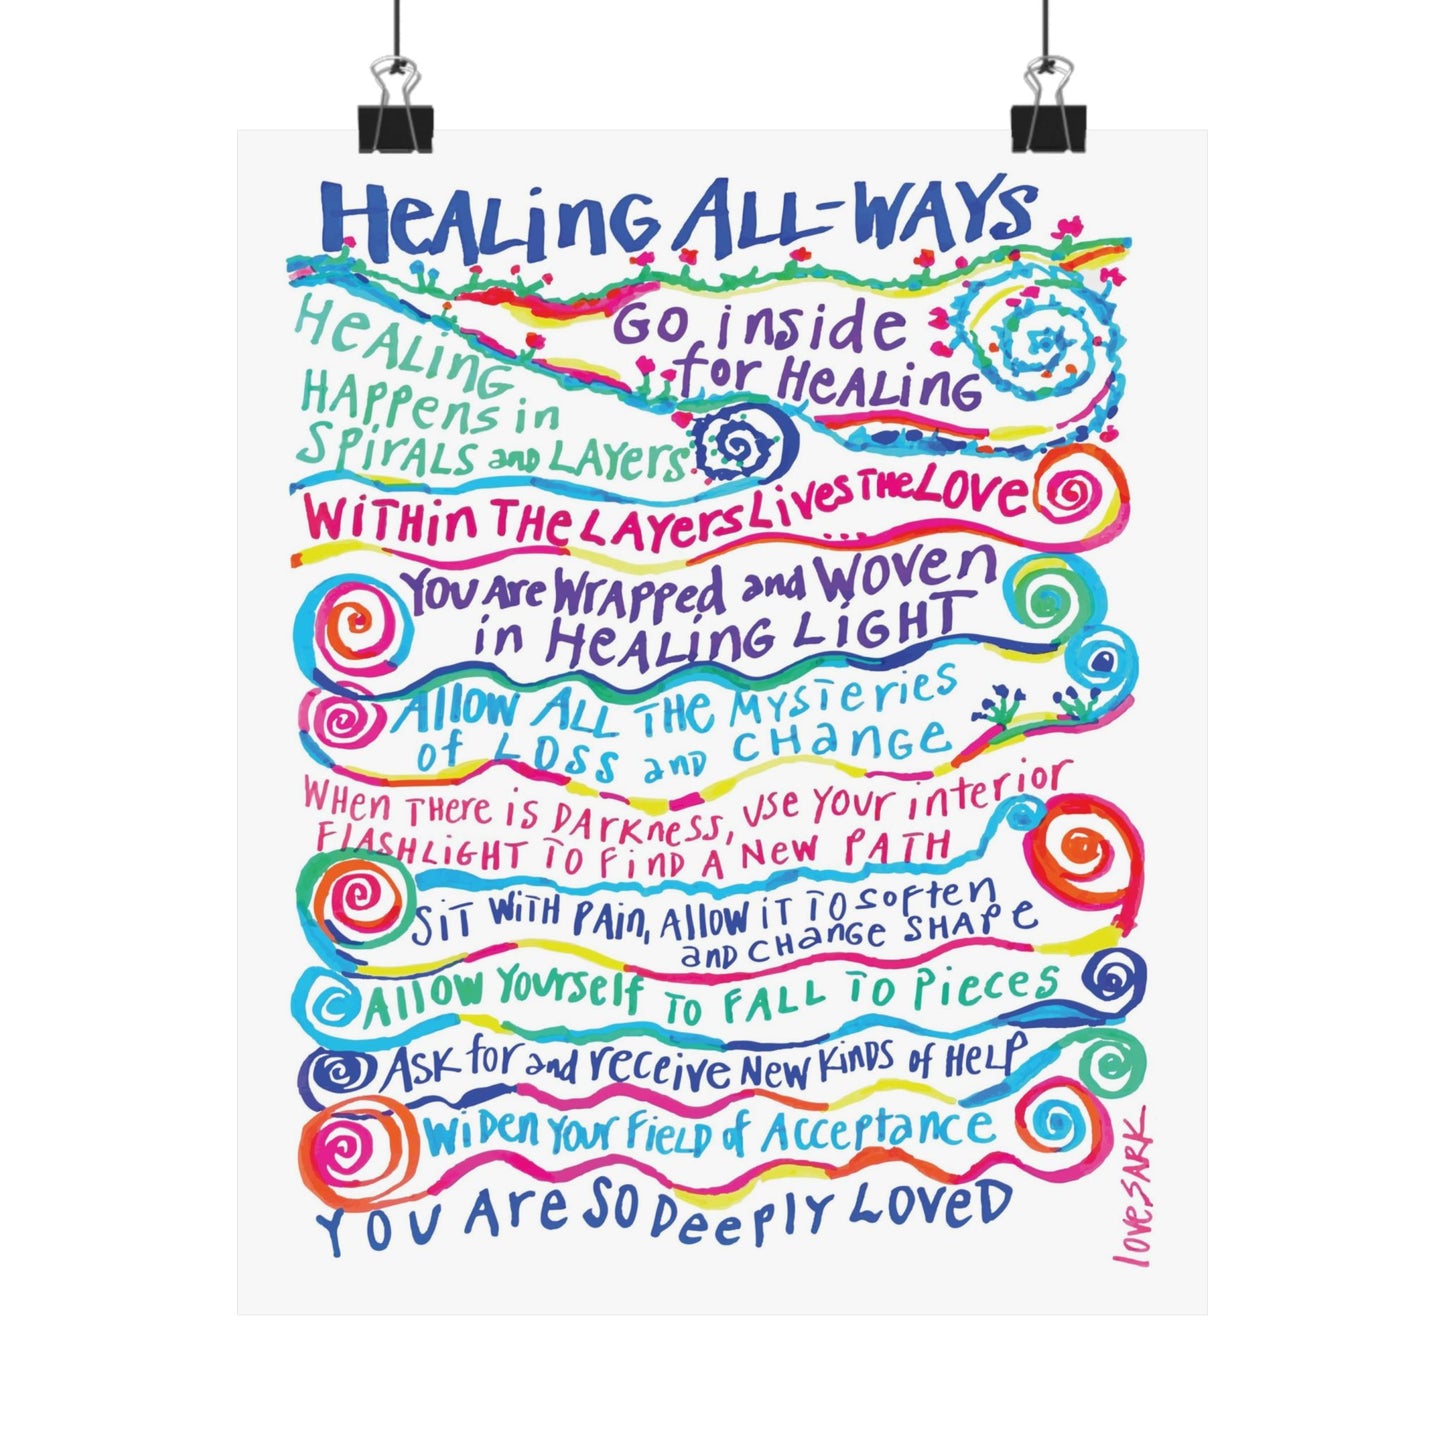 HeALing ALL-WAYS
Go inside
for HeALing
HeALING
HAPPens in
SPirALS and LAYers
WiTHin THe LAYers Lives THe LOVe
...
You Are WrAPPed and WOVen
in HeALing LiGHT
Allow ALL THe MYSTeries
of LOSS and CHanGe
WHen THere is DArKness, Use Your interior
FLASHLiGHT TO Find A New PATH
SiT WiTH PAin, Allow iT TO SOFTen
and CHanGe SHAPe
Allow Yourself TO FALL TO Pieces
ASK for and receive New Kinds of HeLP
WiDen Your Field of AccePtance
YOU Are SO DeePLY LOVeD
love, SARK